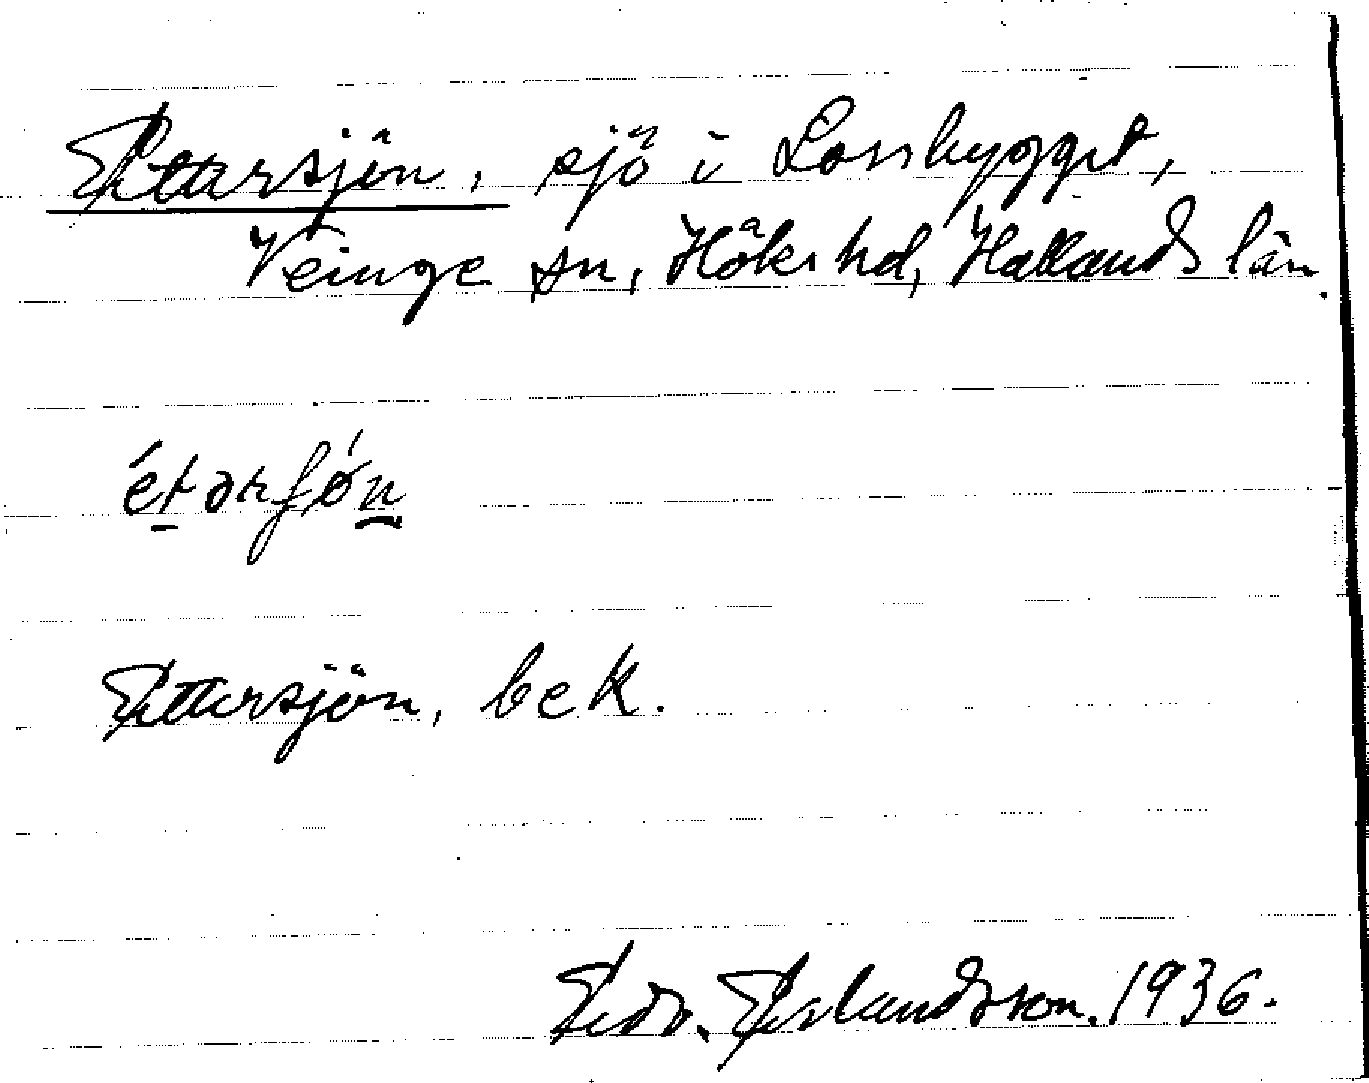 Ettersjön, sjö i Lonsbygget,
Veinge sn, Höks hd, Hallands län.
étərʃǿn
Ettersjön, bek.
Edv. Erlandsson. 1936.